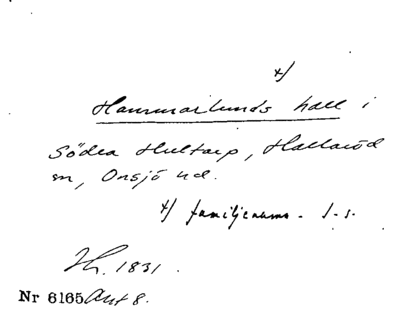 x)
Hammarlunds hall i
Södra Hultarp, Hallaröd
sn, Onsjö hd.
x) familjenamn.
Jh. 1831.
Nr 6165 Ant 8.